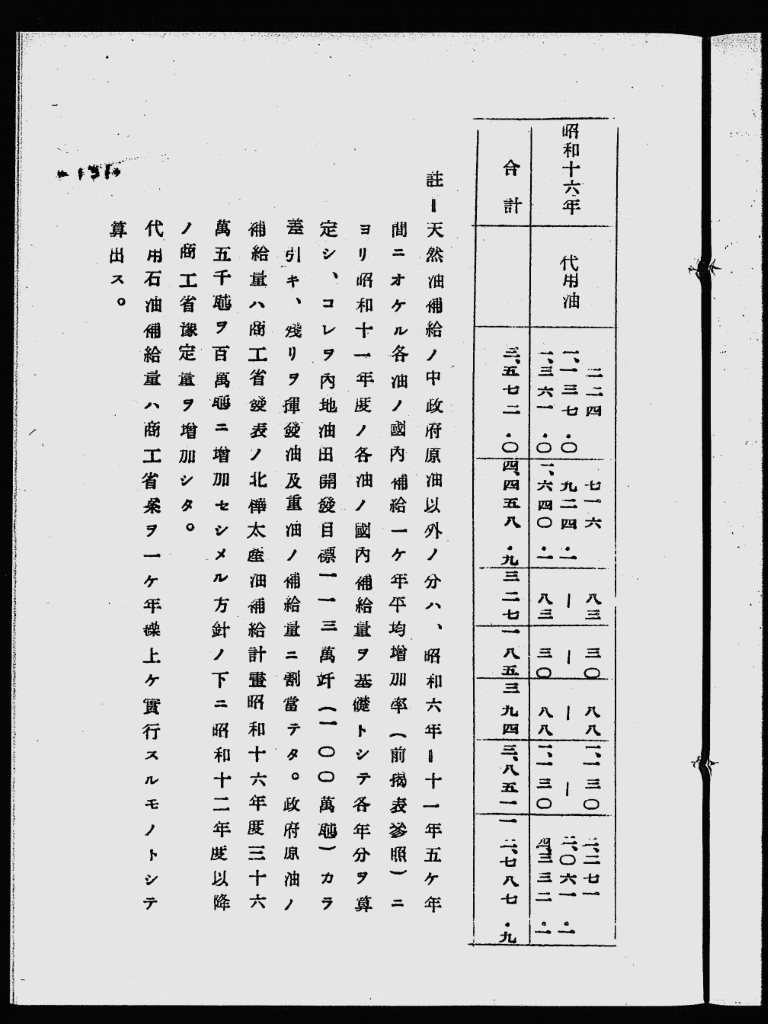 二二四 七一六 八三 三〇 八八 一、一三〇 二、二七一
昭和十六年 代用油 一、一三七・〇 九二四・一 ー ー ー ー 二、〇六一・一
一、三六一・〇 一、六四〇・一 八三 三〇 八八 一、一三〇 四、三三二・一
合計 三、五七二・〇 四、四五八・九 三二七 一八五 三九四 三、八五一 一二、七八七・九
註ー天然油補給ノ中政府原油以外ノ分ハ、昭和六年ー十一年五ケ年
間ニオケル各油ノ國內補給一ケ年平均增加率(前揭表參照)ニ
ヨリ昭和十一年度ノ各油ノ國內補給量ヲ基礎トシテ各年分ヲ算
定シ、コレヲ內地油田開發目標一一三萬竏(一〇〇萬瓲)カラ
差引キ、殘リヲ揮發油及重油ノ補給量ニ割當テタ。政府原油ノ
補給量ハ商工省發表ノ北樺太產油補給計畫昭和十六年度三十六
萬五千瓲ヲ百萬瓲ニ增加セシメル方針ノ下ニ昭和十二年度以降
ノ商工省豫定量ヲ增加シタ。
代用石油補給量ハ商工省案ヲ一ケ年繰上ケ實行スルモノトシテ
算出ス。
-131-